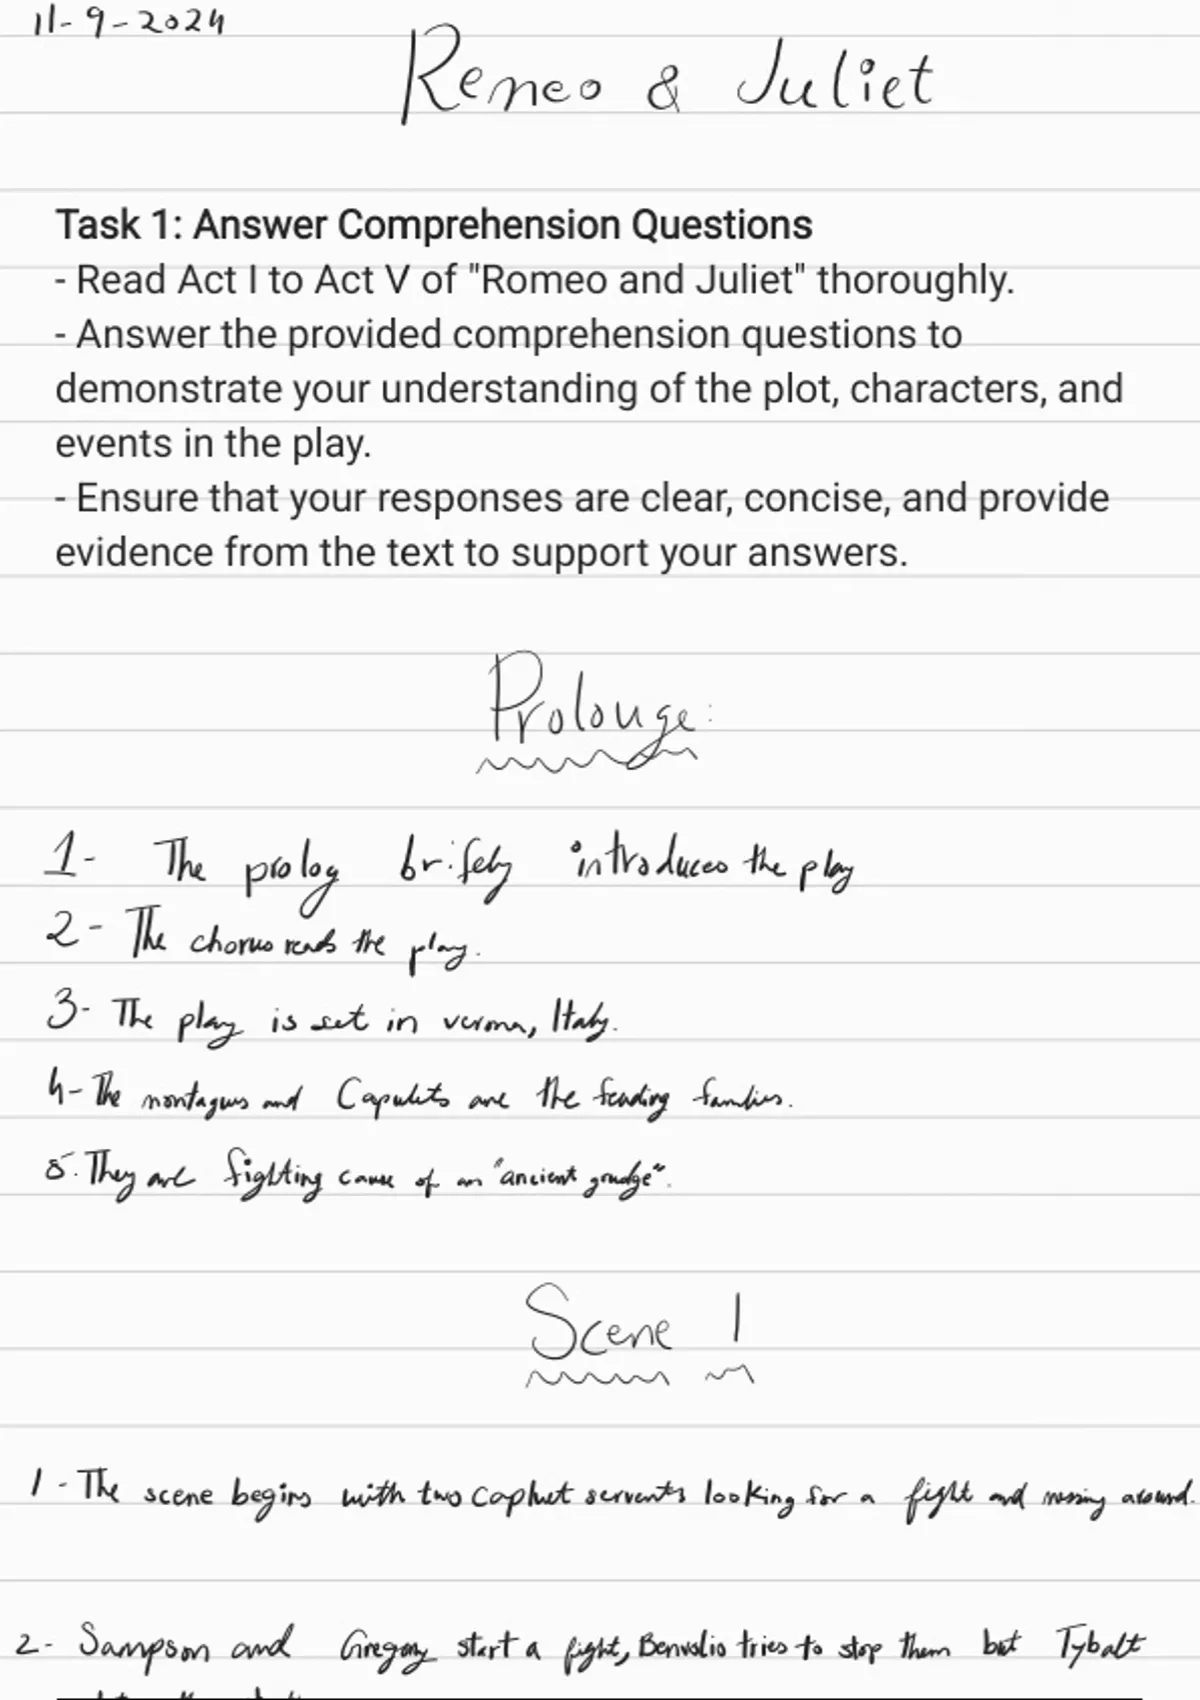 11-9-2024
Remeo & Juliet
Task 1: Answer Comprehension Questions
- Read Act I to Act V of "Romeo and Juliet" thoroughly.
- Answer the provided comprehension questions to
demonstrate your understanding of the plot, characters, and
events in the play.
- Ensure that your responses are clear, concise, and provide
evidence from the text to support your answers.
Prolouge:
1- The prolog brifely introduces the play
2- The chorus reads the play.
3- The play is set in verona, Italy.
4- The montagues and Capulets are the feuding families.
5. They are fighting cause of an "ancient grudge".
Scene 1
1- The scene begins with two Capluet servents looking for a fight and messing around.
2- Sampson and Gregory start a fight, Benvolio tries to stop them but Tybalt